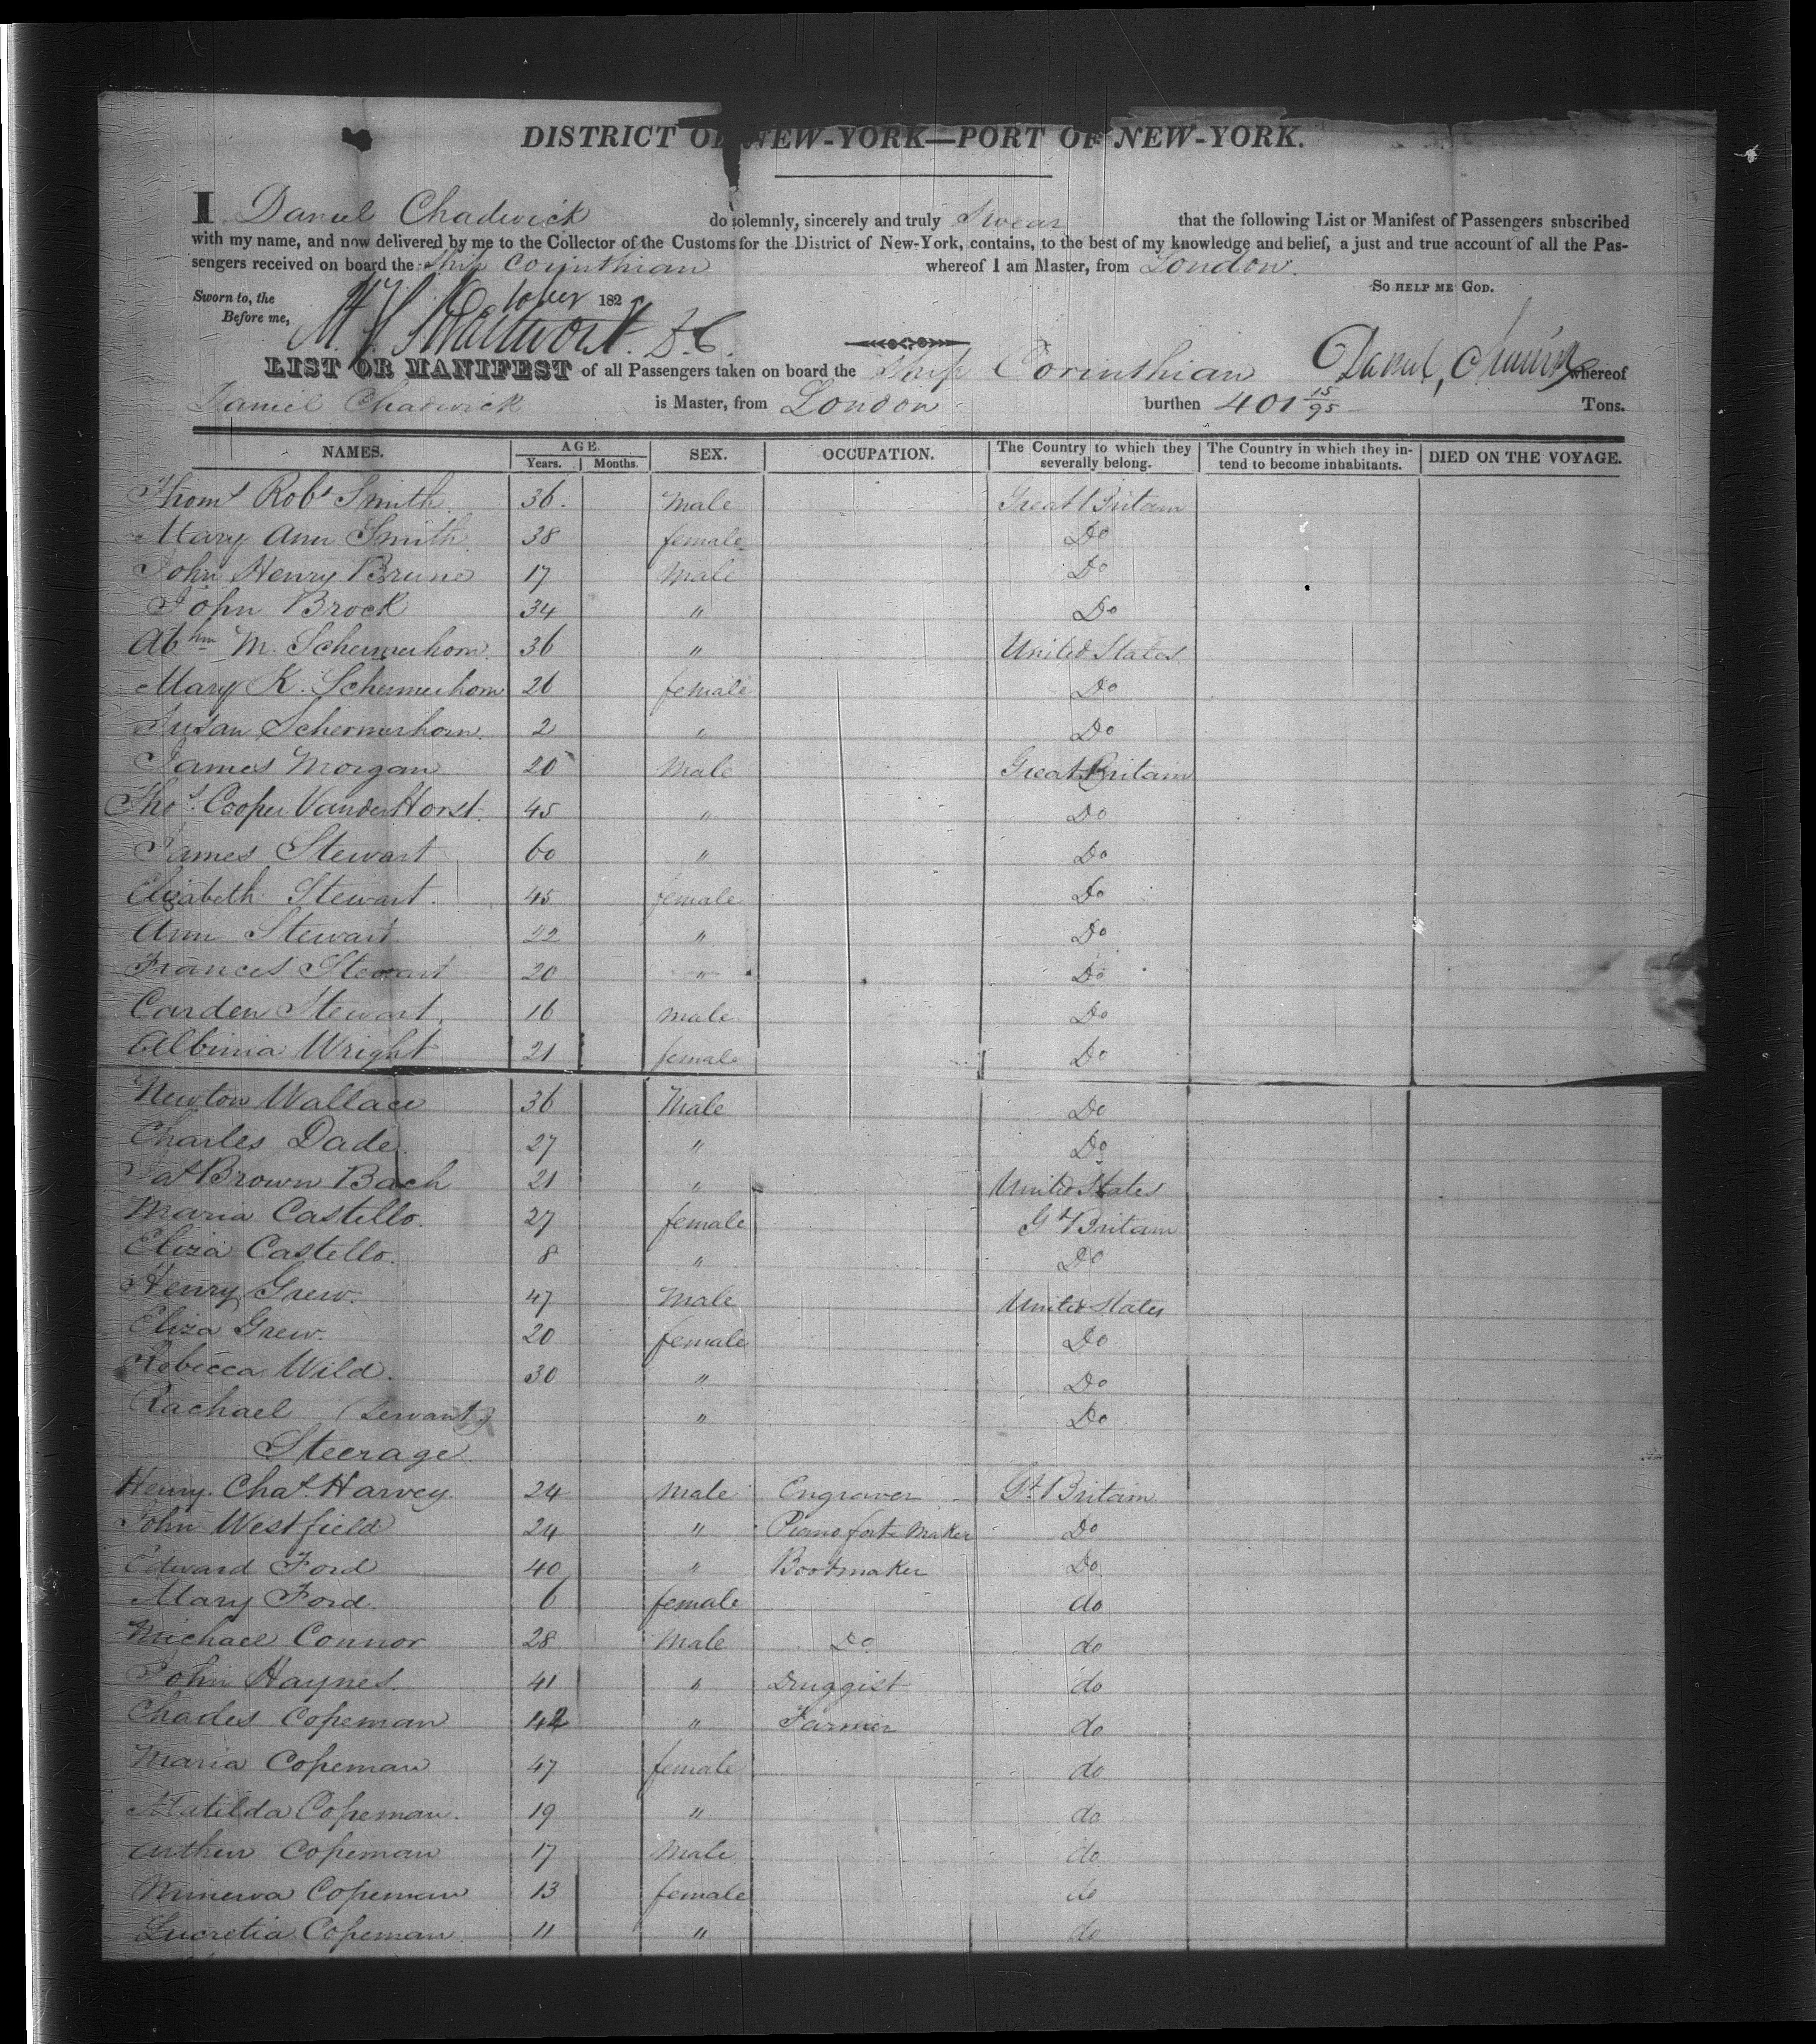 DISTRICT OF NEW-YORK—PORT OF NEW-YORK.
I Daniel Chadwick do solemnly, sincerely and truly Swear that the following List or Manifest of Passengers subscribed
with my name, and now delivered by me to the Collector of the Customs for the District of New-York, contains, to the best of my knowledge and belief, a just and true account of all the Pas-
sengers received on board the Ship Corinthian whereof I am Master, from London.
SO HELP ME GOD.
Sworn to, the October 182
Before me, D.C.
LIST OR MANIFEST of all Passengers taken on board the Ship Corinthian Daniel Chadwick whereof
Daniel Chadwick is Master, from London burthen 401 15/95 Tons.
NAMES. AGE. Years. Months. SEX. OCCUPATION. The Country to which they severally belong. The Country in which they in-tend to become inhabitants. DIED ON THE VOYAGE.
Thoms Robt Smith 36. Male Great Britain
Mary Ann Smith 38 female Do
John Henry Brune 17 Male Do
John Brock 34 " Do
Abhm M. Schermerhorn 36 " United States
Mary K. Schermerhorn 26 female Do
Susan Schermerhorn 2 " Do
James Morgan 20 Male Great Britain
Thos. Cooper VanderHorst 45 " Do
James Stewart 60 " Do
Elizabeth Stewart. 45 female Do
Ann Stewart 22 " Do
Frances Stewart 20 " Do
Carden Stewart 16 male Do
Albinia Wright 21 female Do
Newton Wallace 36 Male Do
Charles Dade 27 " Do
Jas Brown Bach 21 " United States
Maria Castello. 27 female Gt Britain
Eliza Castello. 8 " Do
Henry Grew. 47 Male United States
Eliza Grew. 20 female Do
Rebecca Wild. 30 " Do
Rachael (Servant) " Do
Steerage
Henry Chas. Harvey 24 male Engraver Gt. Britain
John Westfield 24 " Piano forte Maker Do
Edward Ford 40 " Bootmaker Do
Mary Ford 6 female do
Michael Connor 28 Male Do do
John Haynes 41 " Druggist do
Charles Copeman 42 " Farmer do
Maria Copeman 47 female do
Matilda Copeman. 19 " do
Arthur Copeman 17 Male do
Minerva Copeman 13 female do
Lucretia Copeman. 11 " do